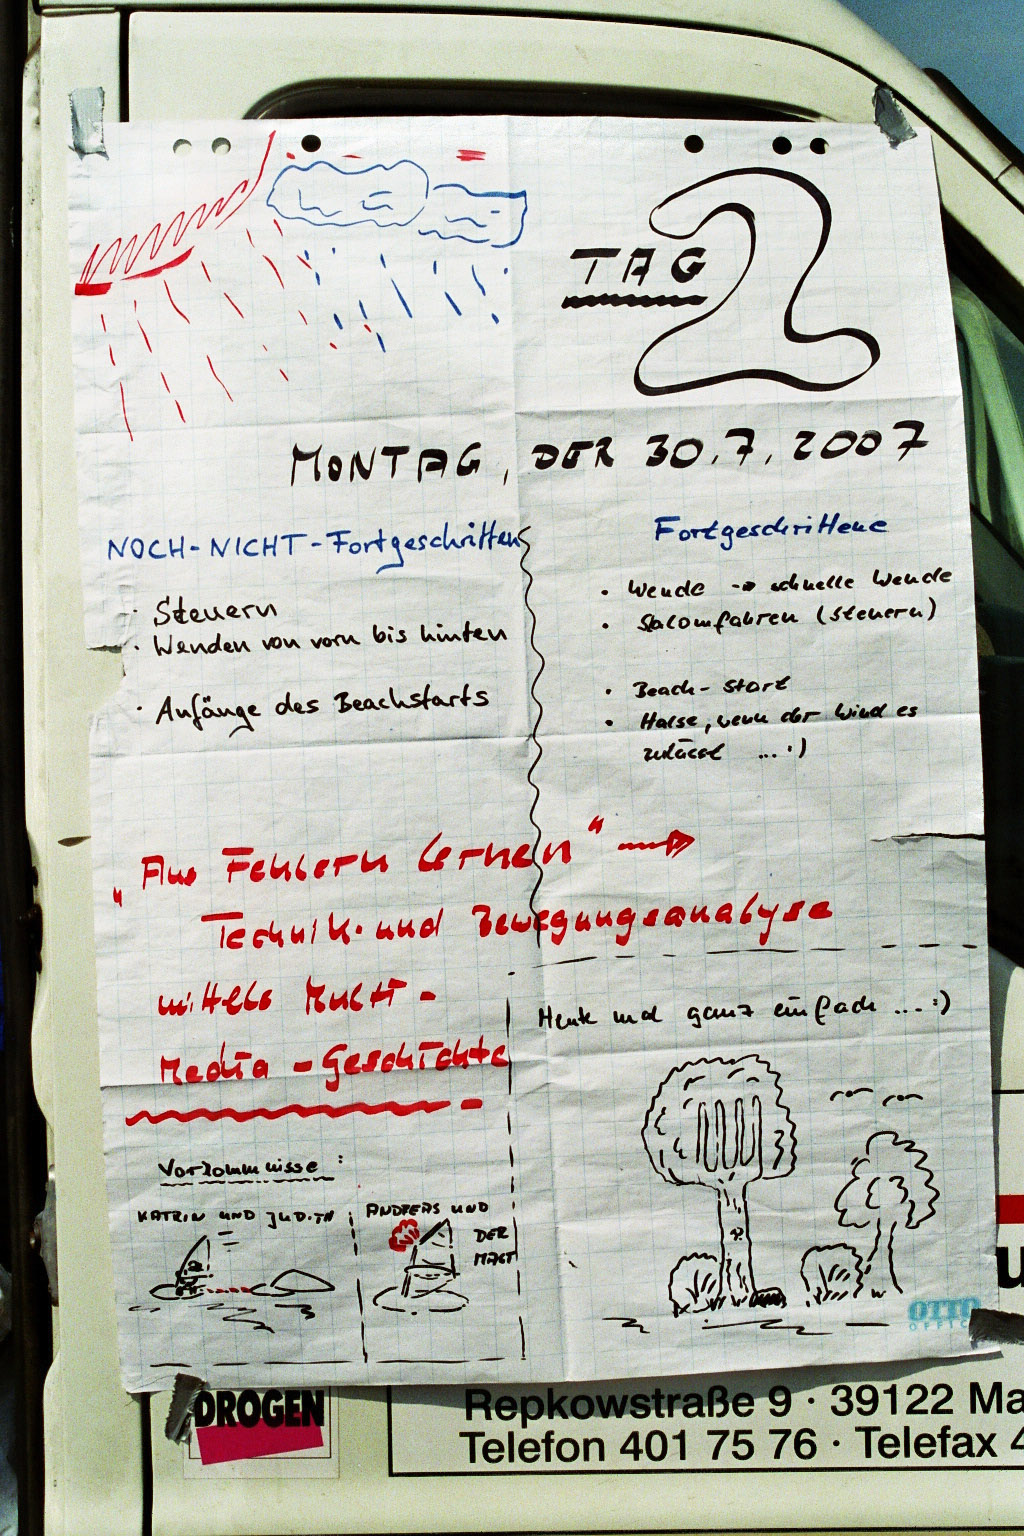 TAG 2
MONTAG, DER 30.7.2007
NOCH-NICHT-Fortgeschritten
· Steuern
· Wenden von vorn bis hinten
· Anfänge des Beachstarts
Fortgeschrittene
· Wende → schnelle Wende
· Slalomfahren (steuern)
· Beach-Start
· Halse, wenn der Wind es
zulässt ... :)
„Aus Fehlern lernen“ →
Technik- und Bewegungsanalyse
mittels Multi-
Media-Geschichte
Heute mal ganz einfach ... :)
Vorkommnisse:
KATRIN UND JUDITH
ANDREAS UND
DER
MAST
OTTO
OFFICE
DROGEN
Repkowstraße 9 · 39122 Ma
Telefon 401 75 76 · Telefax 4